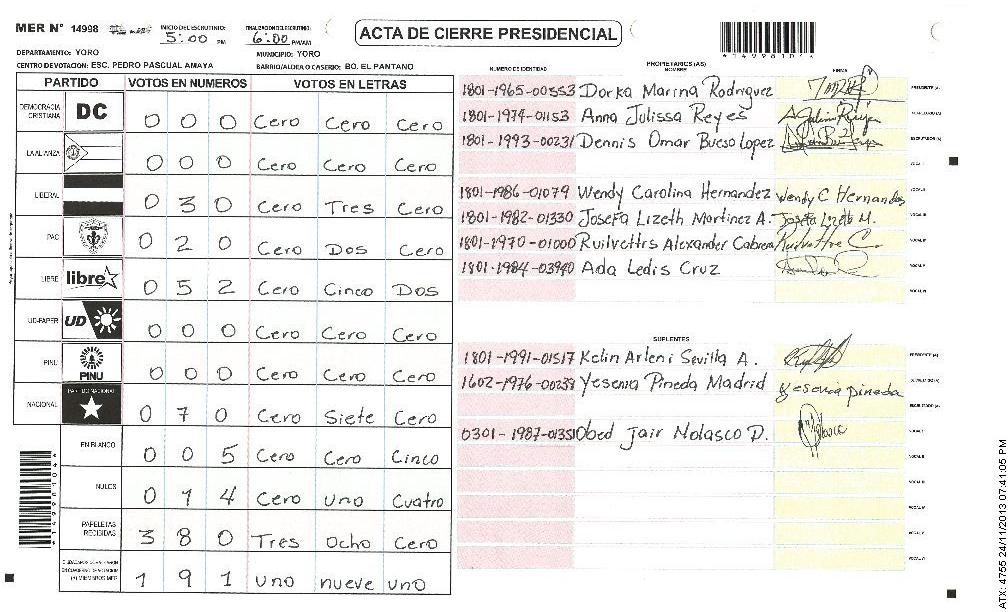 MER Nº 14998 INICIO DEL ESCRUTINIO: 5:00 PM FINALIZACION DEL ESCRUTINIO: 6:00 PM/AM
ACTA DE CIERRE PRESIDENCIAL
DEPARTAMENTO: YORO MUNICIPIO: YORO
CENTRO DE VOTACION: ESC. PEDRO PASCUAL AMAYA BARRIO/ALDEA O CASERIO: BO. EL PANTANO
PARTIDO VOTOS EN NUMEROS VOTOS EN LETRAS
DEMOCRACIA CRISTIANA DC 0 0 0 Cero Cero Cero
LA ALIANZA 0 0 0 Cero Cero Cero
LIBERAL 0 3 0 Cero Tres Cero
PAC 0 2 0 Cero Dos Cero
LIBRE libre 0 5 2 Cero Cinco Dos
UD-FAPER UD 0 0 0 Cero Cero Cero
PINU PINU 0 0 0 Cero Cero Cero
NACIONAL PARTIDO NACIONAL 0 7 0 Cero Siete Cero
EN BLANCO 0 0 5 Cero Cero Cinco
NULOS 0 1 4 Cero Uno Cuatro
PAPELETAS RECIBIDAS 3 8 0 Tres Ocho Cero
1 9 1 uno nueve uno
PROPIETARIOS (AS)
NUMERO DE IDENTIDAD NOMBRE FIRMA
1801-1965-00553 Dorka Marina Rodriguez PRESIDENTE (A)
1801-1974-01153 Anna Julissa Reyes SECRETARIO (A)
1801-1993-00231 Dennis Omar Bueso Lopez ESCRUTADOR (A)
VOCAL I
1801-1986-01079 Wendy Carolina Hernandez Wendy C Hernandez VOCAL II
1801-1982-01330 Josefa Lizeth Martinez A. Josefa Lizeth M. VOCAL III
1801-1970-01000 Ruilvettrs Alexander Cabrera VOCAL IV
1801-1984-03940 Ada Ledis Cruz VOCAL V
VOCAL VI
SUPLENTES
1801-1991-01517 Kelin Arleni Sevilla A. PRESIDENTE (A)
1602-1976-00239 Yesenia Pineda Madrid yesenia pineda SECRETARIO (A)
ESCRUTADOR (A)
0301-1987-01351 Obed Jair Nolasco D. VOCAL I
VOCAL II
VOCAL III
VOCAL IV
VOCAL V
VOCAL VI
ATX: 4755 24/11/2013 07:41:05 PM